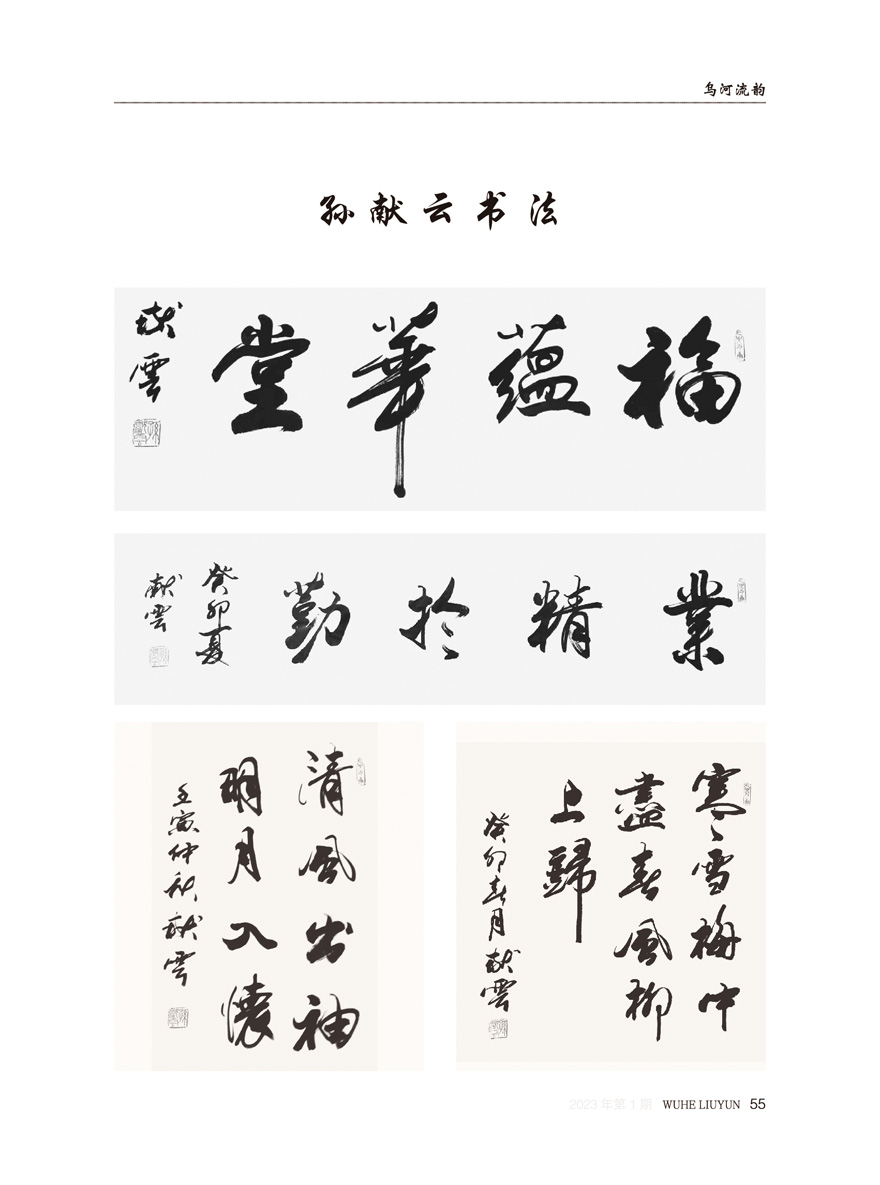 乌河流韵
孙献云书法
福蕴華堂
献雲
業精於勤
癸卯夏
献雲
清風出袖
明月入懷
壬寅仲秋献雲
寒雪梅中
盡春風柳
上歸
癸卯春月献雲
2023年第1期 WUHE LIUYUN 55